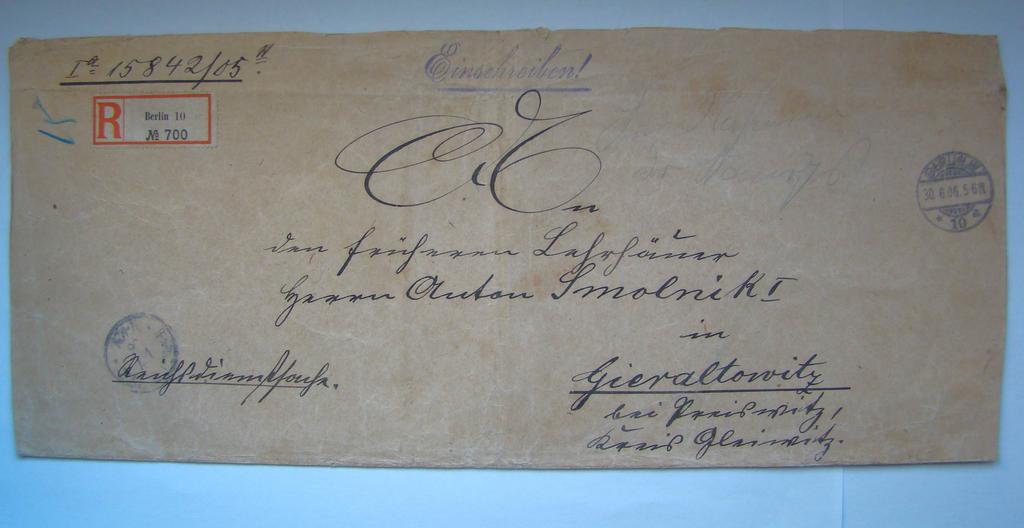 Iª 15842/05 II.
Einschreiben!
R Berlin 10
№ 700
30.6.06.5-6N.
* 10 a
An
den früheren Lehrhäuer
Herrn Anton Smolnik I
in
Gieraltowitz
bei Preiswitz,
Kreis Gleiwitz.
Reichsdienstsache.